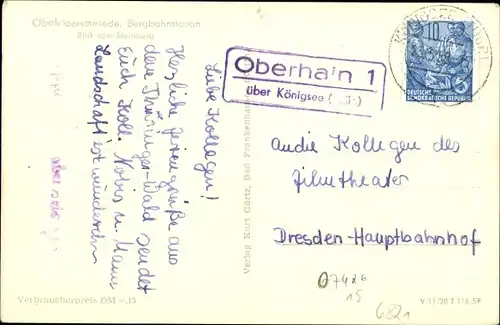 Obstfelderschmiede, Bergbahnstation
Blick vom Steinberg
Liebe Kollegen!
Herzliche Feriengrüße aus
dem Thüringer-Wald sendet
Euch Koll. Nobis u. Mann
Landschaft ist wunderschön
aber
Oberhain 1
über Königsee
10
DEUTSCHE
DEMOKRATISCHE REPUBLIK
Verlag Kurt Görtz, Bad Frankenhausen
An die Kollegen des
Filmtheater
Dresden-Hauptbahnhof
07426
15
6821
Verbraucherpreis DM -,15
V/11/28 T 116/59